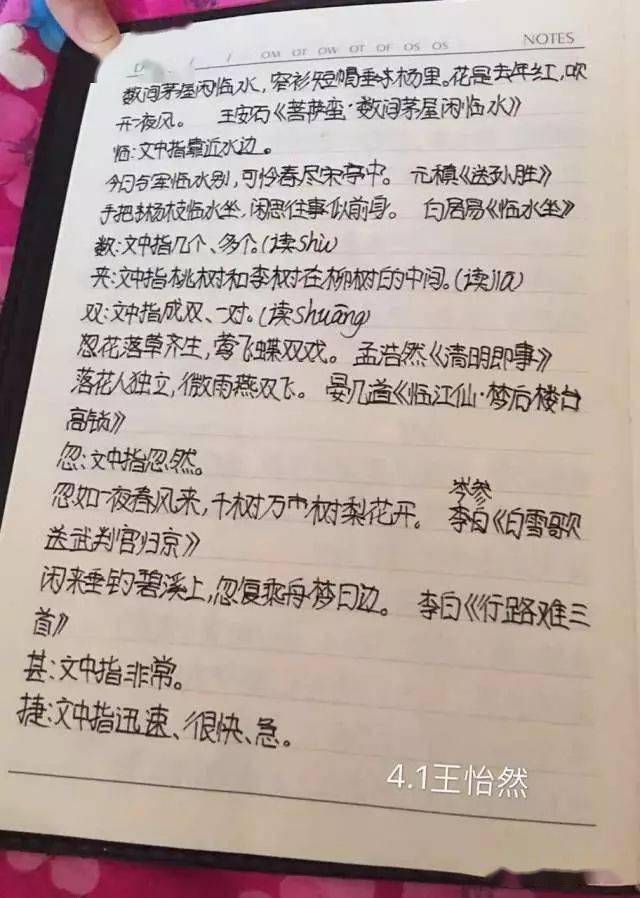 D / / OM OT OW OT OF OS OS NOTES
数间茅屋闲临水，窄衫短帽垂杨里。花是去年红，吹
开一夜风。 王安石《菩萨蛮·数间茅屋闲临水》
临:文中指靠近水边。
今日与军临水别，可怜春尽宋亭中。 元稹《送孙胜》
手把杨枝临水坐，闲思往事似前身。 白居易《临水坐》
数:文中指几个、多个。(读shù)
夹:文中指桃树和李树在柳树的中间。(读jiā)
双:文中指成双、一对。(读shuāng)
忽花落草齐生，莺飞蝶双戏。 孟浩然《清明即事》
落花人独立，微雨燕双飞。 晏几道《临江仙·梦后楼台
高锁》
忽:文中指忽然。
岑参
忽如一夜春风来，千树万树梨花开。 李白《白雪歌
送武判官归京》
闲来垂钓碧溪上，忽复乘舟梦日边。 李白《行路难三
首》
甚:文中指非常。
捷:文中指迅速、很快、急。
4.1王怡然